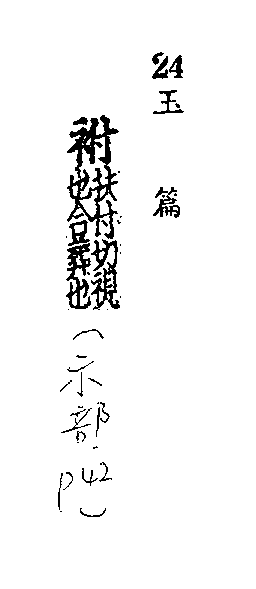 24 玉篇
祔扶付切視也合葬也(示部.P42)